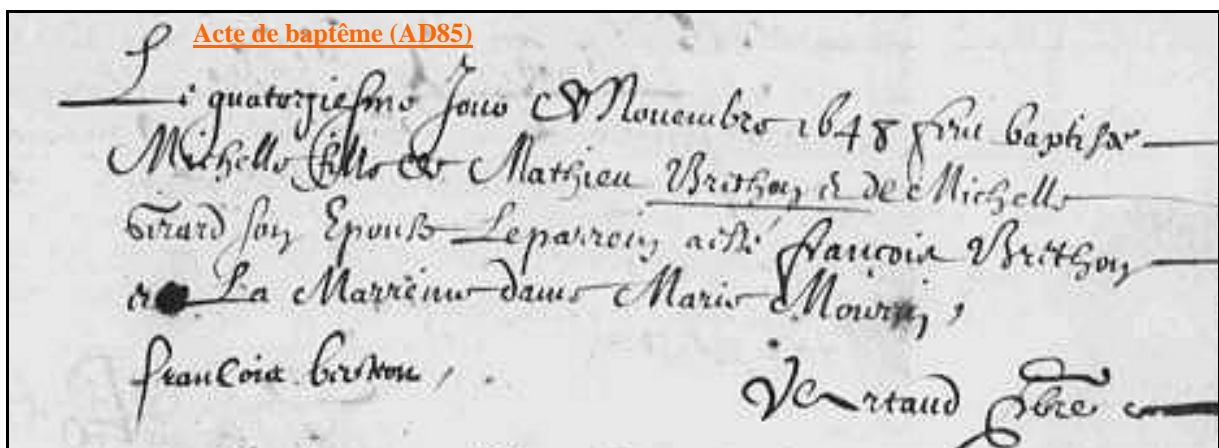 Acte de baptême (AD85)
Le quatorziesme Jour de Nouembre 1648 fut baptisée
Michelle fille de Mathieu Brithon et de Michelle
Girard son Epouse Le parrein a esté françois Brithon
et La Marreine dame Marie Mourin,
françois briton,
Artaud pbre